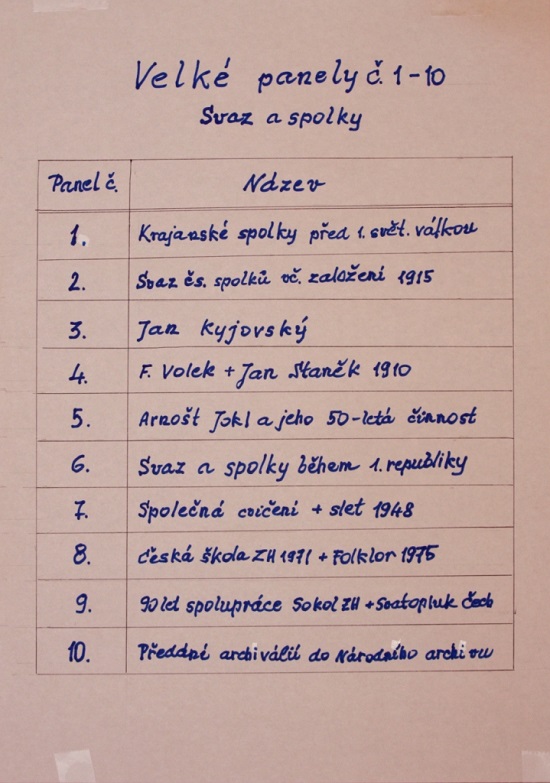 Velké panely č. 1-10
Svaz a spolky
Panel č. Název
1. Krajanské spolky před 1. svět. válkou
2. Svaz čs. spolků vč. založení 1915
3. Jan Kyjovský
4. F. Volek + Jan Staněk 1910
5. Arnošt Jokl a jeho 50-letá činnost
6. Svaz a spolky během 1. republiky
7. Společná cvičení + slet 1948
8. Česká škola ZH 1971 + Folklor 1975
9. 90 let spolupráce Sokol ZH + Svatopluk Čech
10. Předání archiválií do Národního archivu